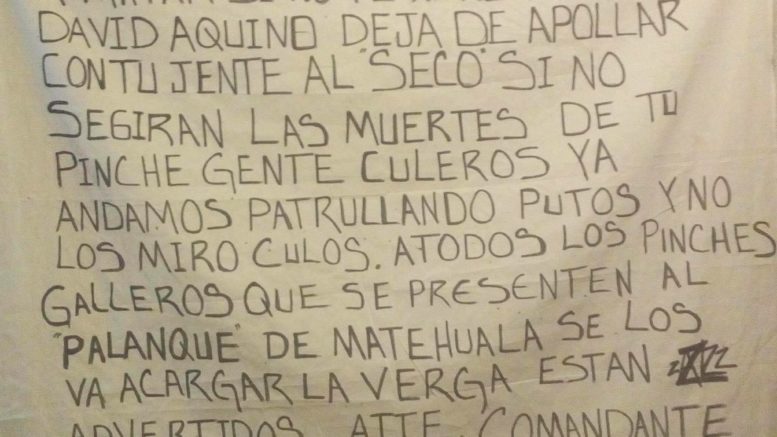 DAVID AQUINO DEJA DE APOLLAR
CON TU JENTE AL "SECO" SI NO
SEGIRAN LAS MUERTES DE TU
PINCHE GENTE CULEROS YA
ANDAMOS PATRULLANDO PUTOS Y NO
LOS MIRO CULOS. ATODOS LOS PINCHES
GALLEROS QUE SE PRESENTEN AL
"PALANQUE" DE MATEHUALA SE LOS
VA ACARGAR LA VERGA ESTAN
ADVERTIDOS ATTE. COMANDANTE